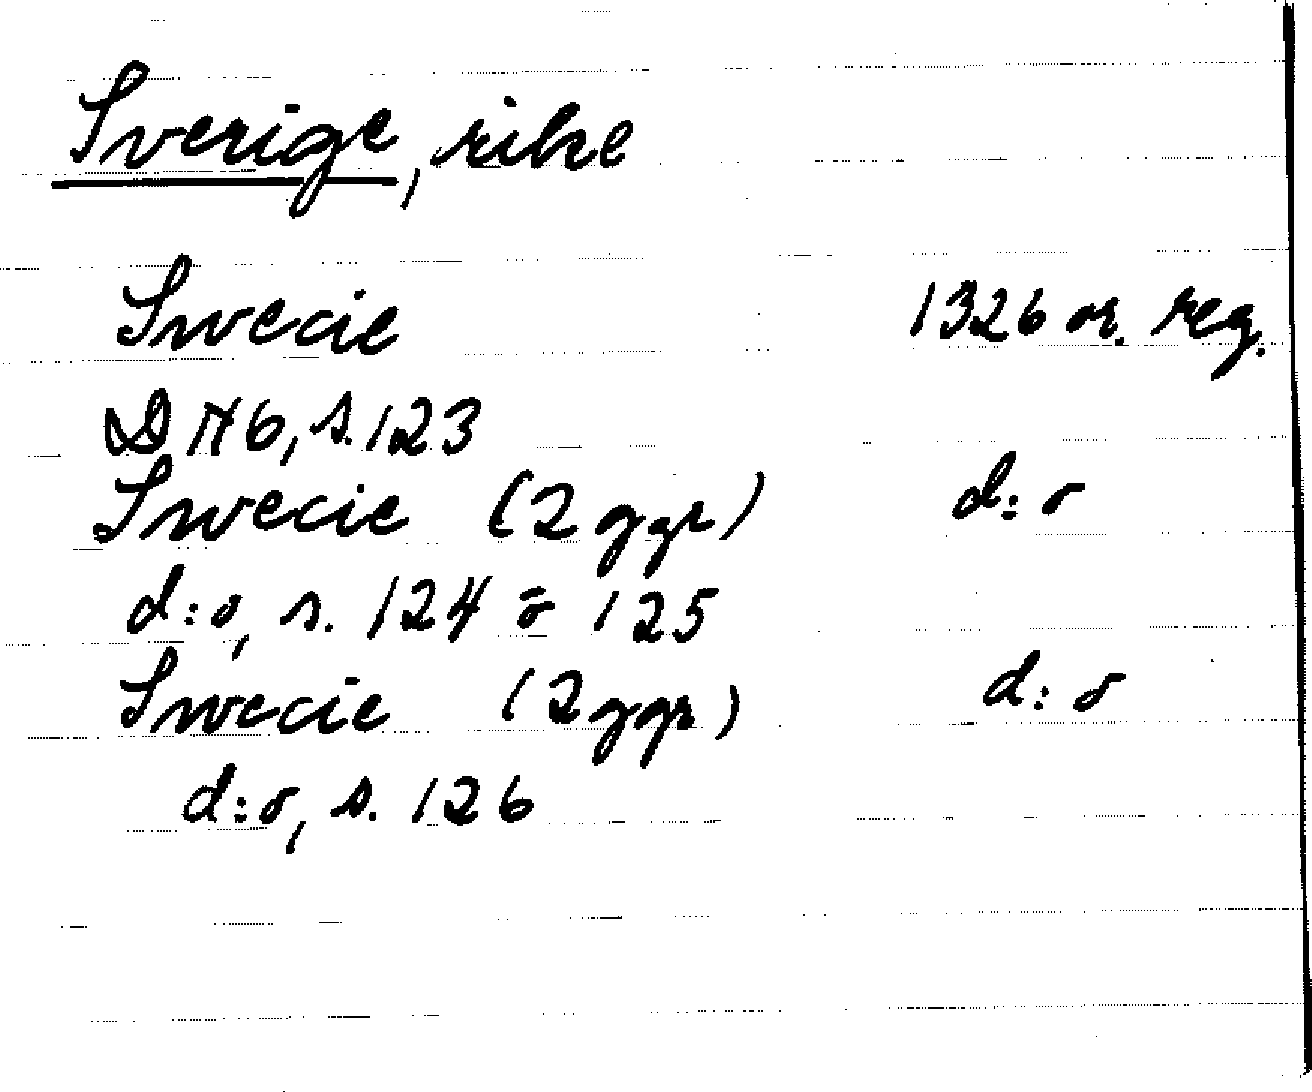 Sverige, rike
Swecie 1326 or. reg.
DN 6, s. 123
Swecie (2 ggr) d:o
d:o, s. 124 o 125
Swecie (2 ggr) d:o
d:o, s. 126